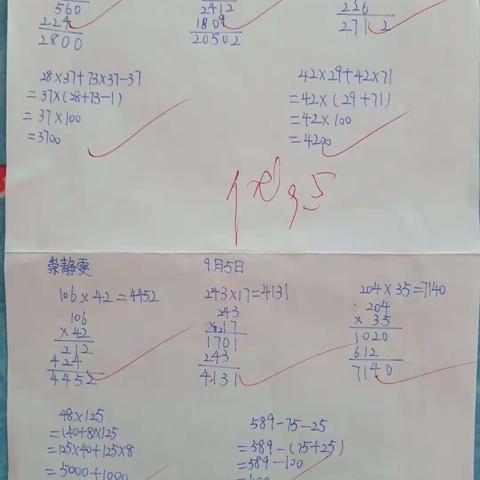 560
224
2800
2412
1809
20502
226
2712
28×37+73×37-37
=37×(28+73-1)
=37×100
=3700
42×29+42×71
=42×(29+71)
=42×100
=4200
9.5
9月5日
106×42=4452
106
×42
212
424
4452
243×17=4131
243
×17
1701
243
4131
204×35=7140
204
×35
1020
612
7140
48×125
=(40+8)×125
=125×40+125×8
=5000+1000
589-75-25
=589-(75+25)
=589-100